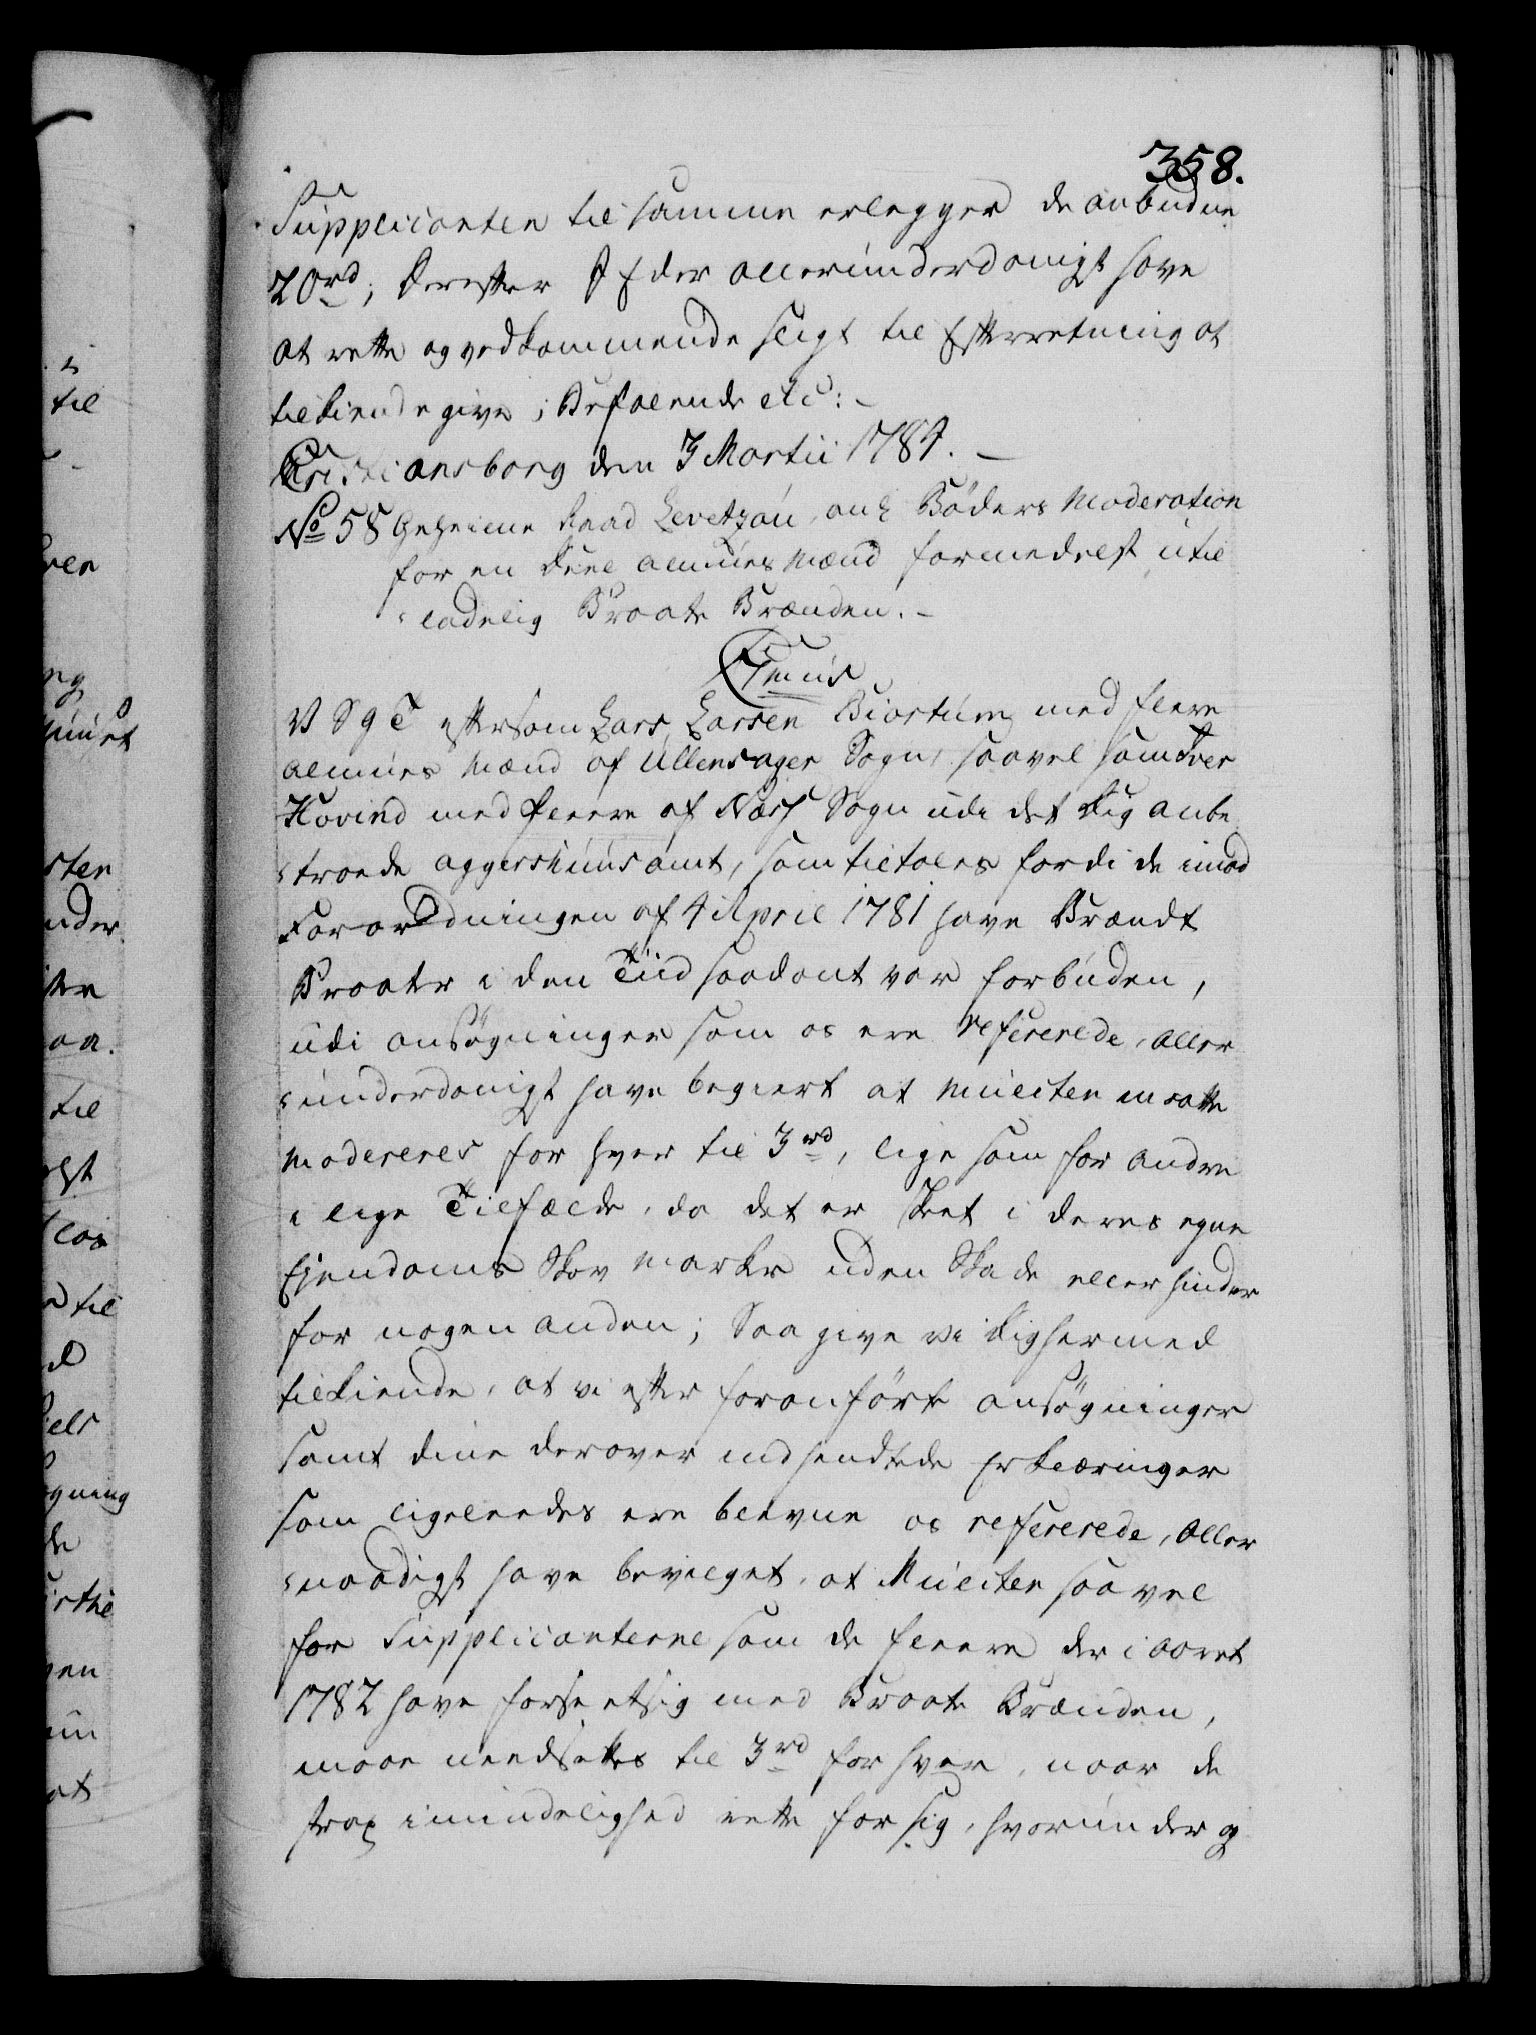 358.
Suppliconten til samme erlegger de anbudne
20rd; Derefter I Eder allerunderdanigst have
at rette og vedkommende sligt til Efterretning at
tilkiende give; Befalende etc:-
Christiansborg den 3 Martii 1784.-
No 58 Geheime Raad Levetzau, ang Bøders Moderation
for en Deel almues Mænd formedelst util
ladelig Braate Brænden.-
C 7mus
V S G T eftersom Lars Larsen Biortum med fleere
almues Mænd af Ullensager Sogn, saavel som Iver
Hovind med fleere af Næss Sogn udi det Dig anbe
troede aggershuus amt, som tiltales fordi de imod
Forordningen af 4 April 1781 have Brændt
Braater i den Tiid saadant var forbuden,
udi ansøgninger som os ere refererede, Aller
underdanigst have begiert at Mulcten maatte
Modereres for hver til 3rd, lige som for andre
i lige Tilfælde, da det er skeet i deres egne
Ejendoms Skov Marker uden Skade eller hinder
for nogen anden; Saa give vi Dig hermed
tilkiende, at vi efter foranførte ansøgninger
samt dine derover indsendtede Erklæringer
som ligeleedes ere blevne os refererede, Aller
naadigst have bevilget, at Mulcten saavel
for Supplicanterne som de fleere der i Aaret
1782 have forseet sig med Braate Brænden,
maae needsettes til 3rd for hver, naar de
strax i mindelighed rette for sig, hvorunder og